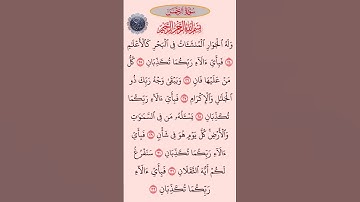 سورة الرحمن
بسم الله الرحمن الرحيم
وَلَهُ الْجَوَارِ الْمُنشَئَاتُ فِي الْبَحْرِ كَالْأَعْلَامِ
فَبِأَيِّ ءَالَآءِ رَبِّكُمَا تُكَذِّبَانِ كُلُّ
مَنْ عَلَيْهَا فَانٍ وَيَبْقَىٰ وَجْهُ رَبِّكَ ذُو
الْجَلَٰلِ وَالْإِكْرَامِ فَبِأَيِّ ءَالَآءِ رَبِّكُمَا
تُكَذِّبَانِ يَسْـَٔلُهُۥ مَن فِي السَّمَٰوَٰتِ
وَالْأَرْضِ كُلَّ يَوْمٍ هُوَ فِي شَأْنٍ فَبِأَيِّ
ءَالَآءِ رَبِّكُمَا تُكَذِّبَانِ سَنَفْرُغُ
لَكُمْ أَيُّهَ الثَّقَلَانِ فَبِأَيِّ ءَالَآءِ
رَبِّكُمَا تُكَذِّبَانِ